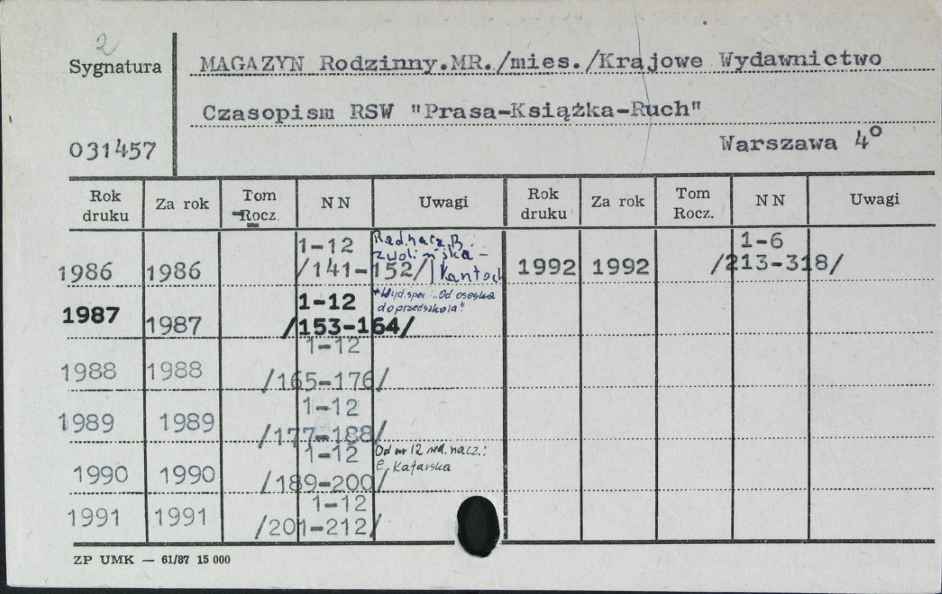 2
Sygnatura
MAGAZYN Rodzinny.MR./mies./Krajowe Wydawnictwo
Czasopism RSW "Prasa-Książka-Ruch"
031457
Warszawa 4°
Rok druku Za rok Tom Rocz. NN Uwagi Rok druku Za rok Tom Rocz. NN Uwagi
1986 1986 1-12 /141-152/ Red. nacz. B. 1992 1992 1-6 /213-318/
1987 1987 1-12 /153-164/ + Wyd. spec. "Od oseska do przedszkola"
1988 1988 1-12 /165-176/
1989 1989 1-12 /177-188/
1990 1990 1-12 /189-200/ Od nr 12 red. nacz.: E. Kafarska
1991 1991 1-12 /201-212/
ZP UMK — 61/87 15 000